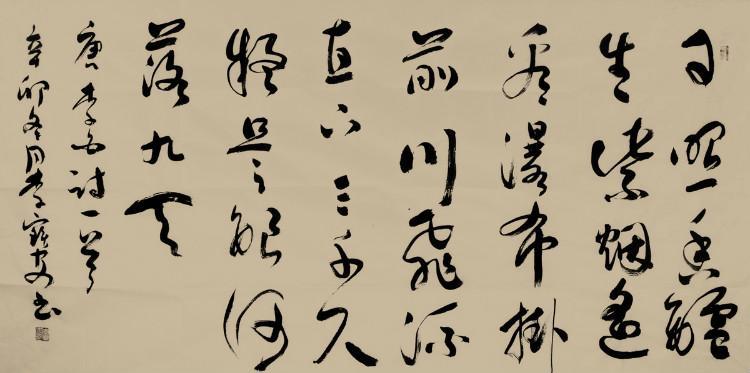 日照香爐
生紫烟遙
看瀑布掛
前川飛流
直下三千尺
疑是銀河
落九天
唐李白詩一首
辛卯冬月李寶安書